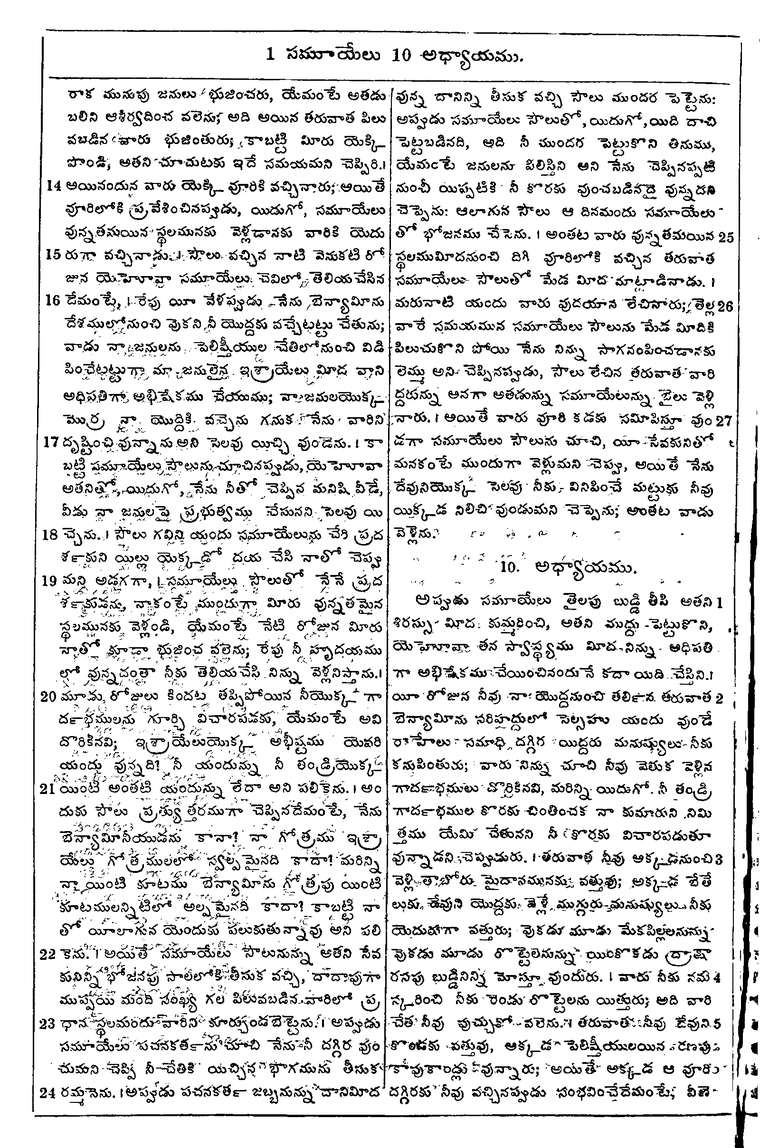 1 సమూయేలు 10 అధ్యాయము.
రాక మునుపు జనులు భుజించరు, యేమంటే అతడు
బలిని ఆశీర్వదించ వలెను; అది అయిన తరువాత పిలు
వబడిన వారు భుజింతురు; కాబట్టి మీరు యెక్కి
పొండి; అతని చూచుటకు ఇదే సమయమని చెప్పిరి.।
14 అయినందున వారు యెక్కి వూరికి వచ్చినారు; అయితే
వూరిలోకి ప్రవేశించినప్పడు, యిదుగో, సమూయేలు
వున్నతమయిన స్థలమునకు వెళ్లడానకు వారికి యెదు
15 రుగా వచ్చినాడు.। సౌలు వచ్చిన నాటి వెనుకటి రో
జున యెహోవా సమూయేలు చెవిలో తెలియ చేసిన
16 దేమంటే, । రేపు యీ వేళప్పడు నేను బెన్యామీను
దేశములోనుంచి వుకని నీ యొద్దకు వచ్చేటట్టు చేతును;
వాడు నా జనులను పెలిష్తీయుల చేతిలోనుంచి విడి
పించేటట్టుగా నా జనులైన ఇశ్రాయేలు మీద వాని
అధిపతిగా అభిషేకము చేయుము; నా జనులయొక్క
మొర్ర నా యొద్దికి వచ్చెను గనుక నేను వారిని
17 దృష్టించి వున్నాను అని సెలవు యిచ్చి వుండెను. । కా
బట్టి సమూయేలు సౌలును చూచినప్పడు, యెహోవా
అతనితో, యిదుగో, నేను నీతో చెప్పిన మనిషి వీడే,
వీడు నా జనులపై ప్రభుత్వము చేసునని సెలవు యి
18 చ్చెను. । సౌలు గవిని యందు సమూయేలును చేరి ప్రద
ర్శకుని యిల్లు యెక్కడో దయ చేసి నాలో చెప్ప
19 మన్ని అడ్గగా, । సమూయేలు సౌలుతో నేనే ప్రద
ర్శకుడను, నాకంటే ముందుగా మీరు వున్నతమైన
స్థలమునకు వెళ్లండి, యేమంటే నేటి రోజున మీరు
నాతో కూడా భుజించ వలెను; రేపు నీ హృదయము
ల్లో వున్నదంతా నీకు తెలియచేసి నిన్ను వెళ్లనిస్తాను.।
20 మూడు రోజులు కిందట తప్పిపోయిన నీయొక్క గా
ర్దభములను గూర్చి విచారపడకు, యేమంటే అవి
దొరికినవి; ఇశ్రాయేలుయొక్క అభీష్టము యెవరి
యందు వున్నది? నీ యందున్ను నీ తండ్రియొక్క
21 యింటి అంతటి యందున్ను లేదా అని పలికెను. । అం
దుకు సౌలు ప్రత్యుత్తరముగా చెప్పినదేమంటే, నేను
బెన్యామీనీయుడను కానా? నా గోత్రము ఇశ్రా
యేలు గోత్రములలో స్వల్పమైనది కాదా? మరిన్ని
నా యింటి కూటము బెన్యామీను గోత్రపు యింటి
కూటములన్నిటిలో అల్పమైనది కాదా? కాబట్టి నా
తో యీలాగున యెందుకు పలుకుతున్నావు అని పలి
22 కెను. । అయితే సమూయేలు సౌలునున్న అతని సేవ
కునిన్ని భోజనపు సాలలోకి తీసుక వచ్చి, దాదాపుగా
ముప్ఫయి మంది సంఖ్య గల పిలువబడిన వారిలో ప్ర
23 ధాన స్థలమందు వారిని కూర్చుండబెట్టెను. । అప్పుడు
సమూయేలు పచనకర్తను చూచి నేను నీ దగ్గిర వుం
చుమని చెప్పి నీ చేతికి యిచ్చిన భాగమును తీసుక
24 రమ్మనెను. । అప్పుడు పచనకర్త జబ్బనున్ను దానిమీద
వున్న దానిన్ని తీసుక వచ్చి సౌలు ముందర పెట్టెను:
అప్పుడు సమూయేలు సౌలుతో, యిదుగో, యిది దాచి
పెట్టబడినది, అది నీ ముందర పెట్టుకొని తినుము,
యేమంటే జనులను పిలిస్తిని అని నేను చెప్పినప్పటి
నుంచీ యిప్పటికి నీ కొరకు వుంచబడినదై వున్నదని
చెప్పెను: ఆలాగున సౌలు ఆ దినమందు సమూయేలు
తో భోజనము చేసెను. । అంతట వారు వున్నతమయిన 25
స్థలముమీదనుంచి దిగి వూరిలోకి వచ్చిన తరువాత
సమూయేలు సౌలుతో మేడ మీద మాట్లాడినాడు. ।
మరునాటి యందు వారు వుదయాన లేచినారు; తెల్ల 26
వారే సమయమున సమూయేలు సౌలును మేడ మీదికి
పిలుచుకొని పోయి నేను నిన్ను సాగనంపించడానకు
లెమ్ము అని చెప్పినప్పడు, సౌలు లేచిన తరువాత వారి
ద్దరున్ను అనగా అతడున్ను సమూయేలున్ను బైలు వెళ్లి
నారు. । అయితే వారు వూరి కడకు సమీపిస్తూ వుం 27
డగా సమూయేలు సౌలును చూచి, యీ సేవకునితో
మనకంటే ముందుగా వెళ్లుమని చెప్పు, అయితే నేను
దేవునియొక్క సెలవు నీకు వినిపించే మట్టుకు నీవు
యిక్కడ నిలిచి వుండుమని చెప్పెను; అంతట వాడు
వెళ్లెను.
10. అధ్యాయము.
అప్పుడు సమూయేలు తైలపు బుడ్డి తీసి అతని 1
శిరస్సు మీద కుమ్మరించి, అతని ముద్దు పెట్టుకొని,
యెహోవా తన స్వాస్థ్యము మీద నిన్ను అధిపతి
గా అభిషేకము చేయించినందునే కదా యిది చేస్తిని.।
యీ రోజున నీవు నా యొద్దనుంచి తర్లిన తరువాత 2
బెన్యామీను సరిహద్దులో సెల్సహు యందు వుండే
రాహేలు సమాధి దగ్గిర యిద్దరు మనుష్యులు నీకు
కనుపింతురు; వారు నిన్ను చూచి నీవు వెతుక వెళ్లిన
గార్దభములు దొరికినవి, మరిన్ని యిదుగో నీ తండ్రి
గార్దభముల కొరకు చింతించక నా కుమారుని నిమి
త్తము యేమి చేతునని నీ కొరకు విచారపడుతూ
వున్నాడని చెప్పుదురు. । తరువాత నీవు అక్కడనుంచి 3
వెళ్లి తాబోరు మైదానమునకు వత్తువు; అక్కడ బేతే
లుకు దేవుని యొద్దకు వెళ్లే ముగ్గురు మనుష్యులు నీకు
యెదురుగా వత్తురు; వుకడు మూడు మేకపిల్లలనున్ను
వుకడు మూడు రొట్టెలెనున్ను యింకొకడు ద్రాక్షా
రసపు బుడ్డినిన్ని మోస్తూ వుందురు. । వారు నీకు నమ 4
స్కరించి నీకు రెండు రొట్టెలను యిత్తురు; అది వారి
చేత నీవు పుచ్చుకో వలెను. । తరువాత నీవు దేవుని 5
కొండకు వత్తువు, అక్కడ పెలిష్తీయులయిన రణపు
కావుకాండ్లు వున్నారు; అయితే అక్కడ ఆ వూరి
దగ్గిరకు నీవు వచ్చినప్పుడు సంభవించేదేమంటే, వీణె